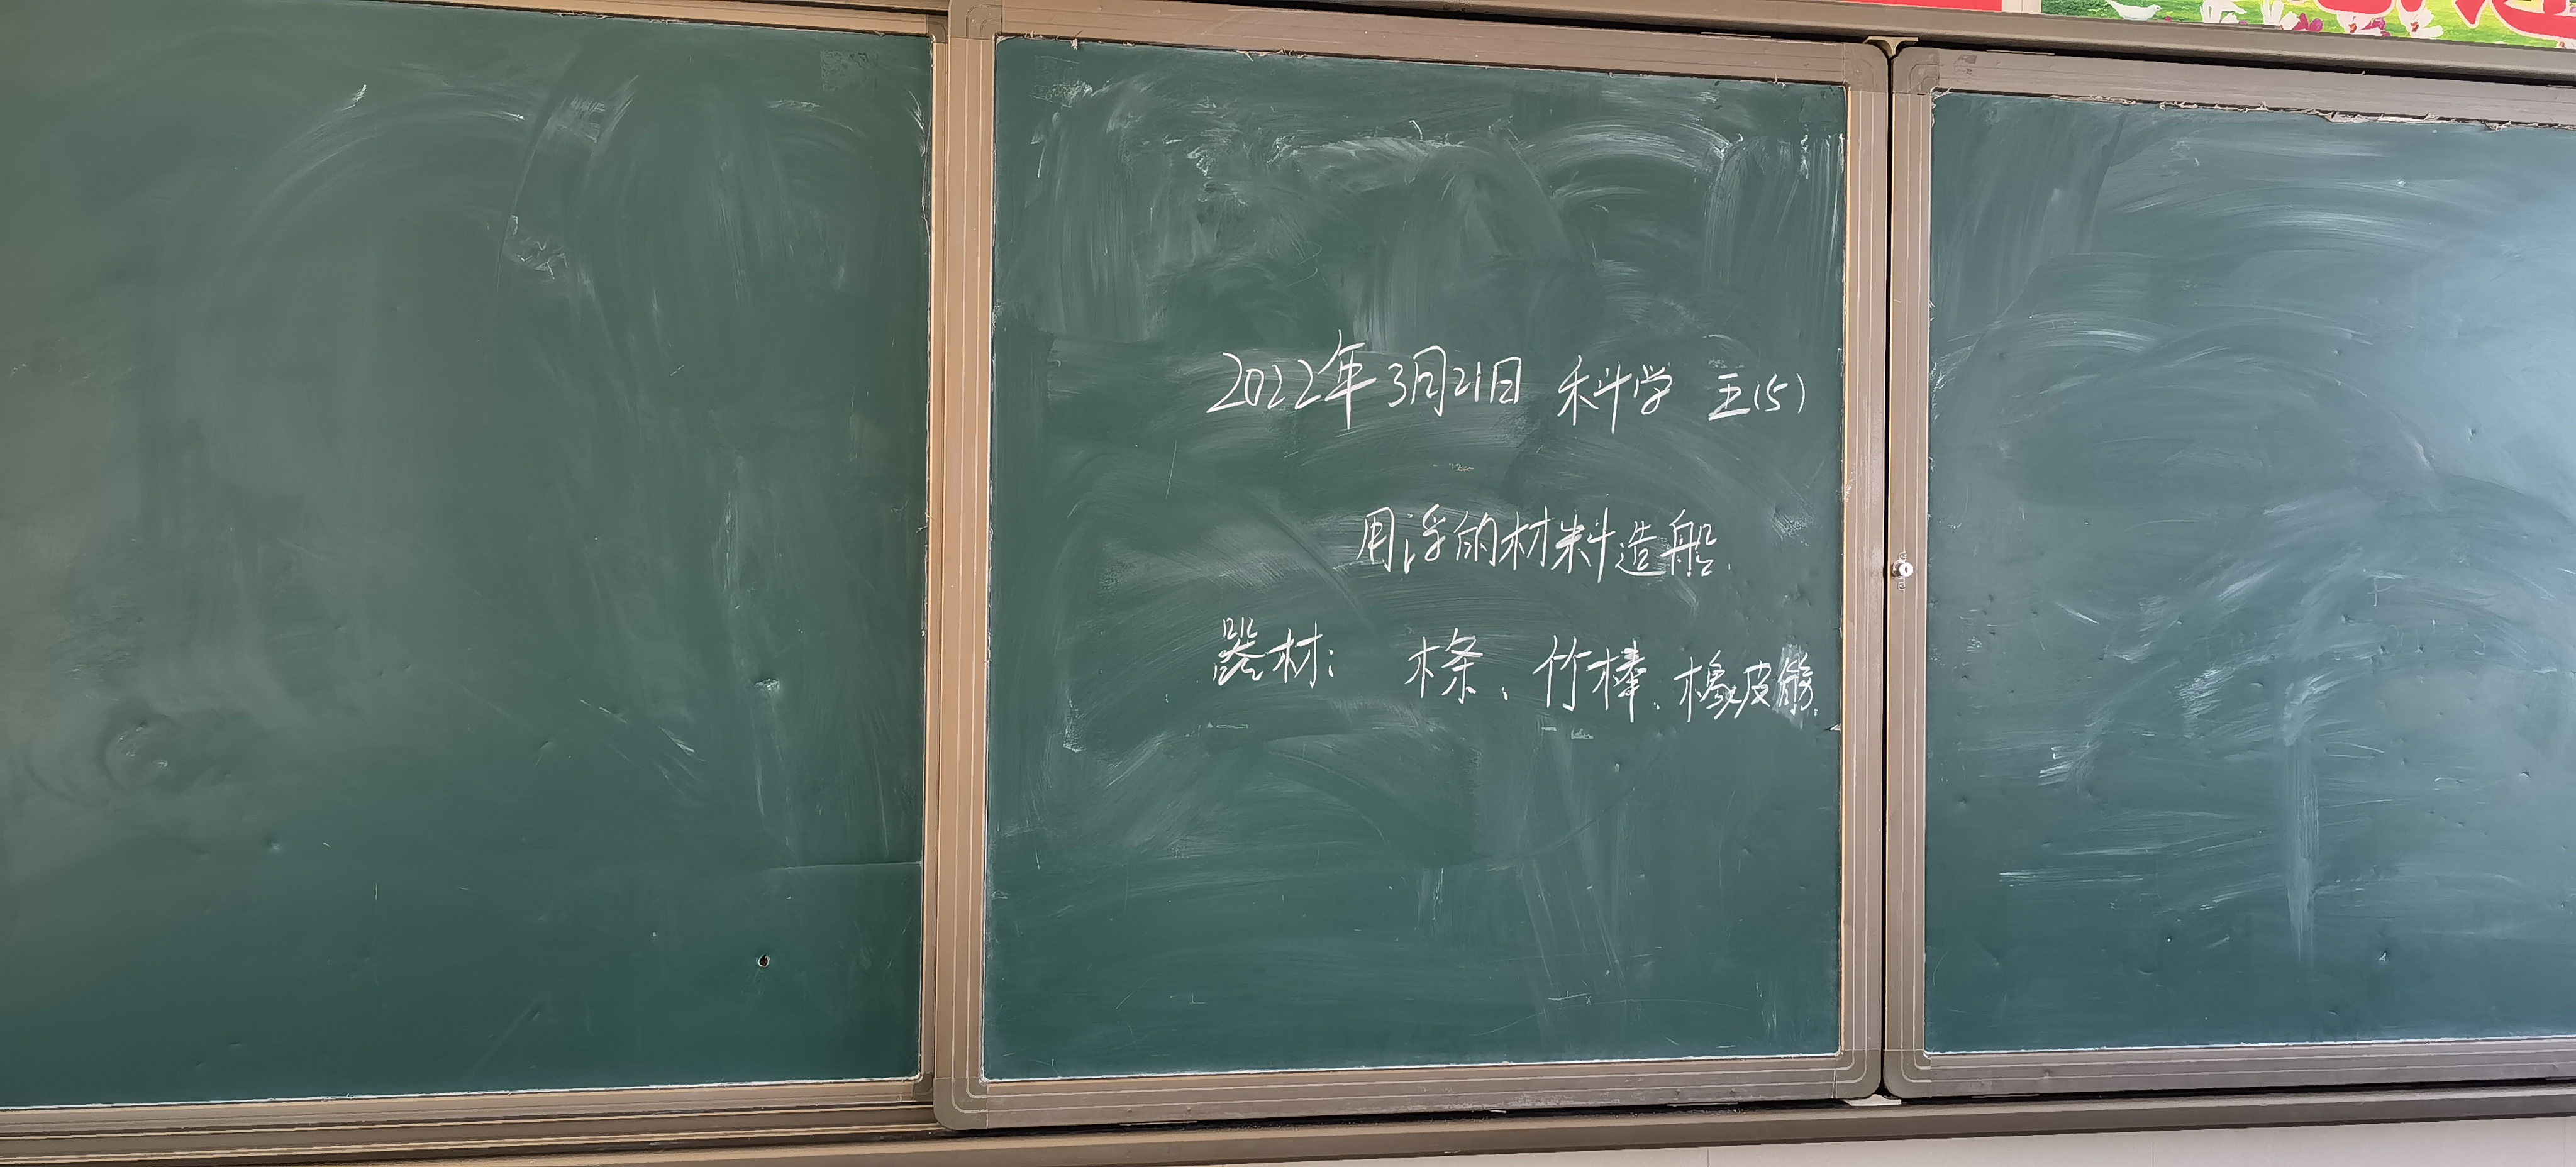 2022年3月21日 科学 五(5)
用浮的材料造船.
器材: 木条、竹棒、橡皮筋.